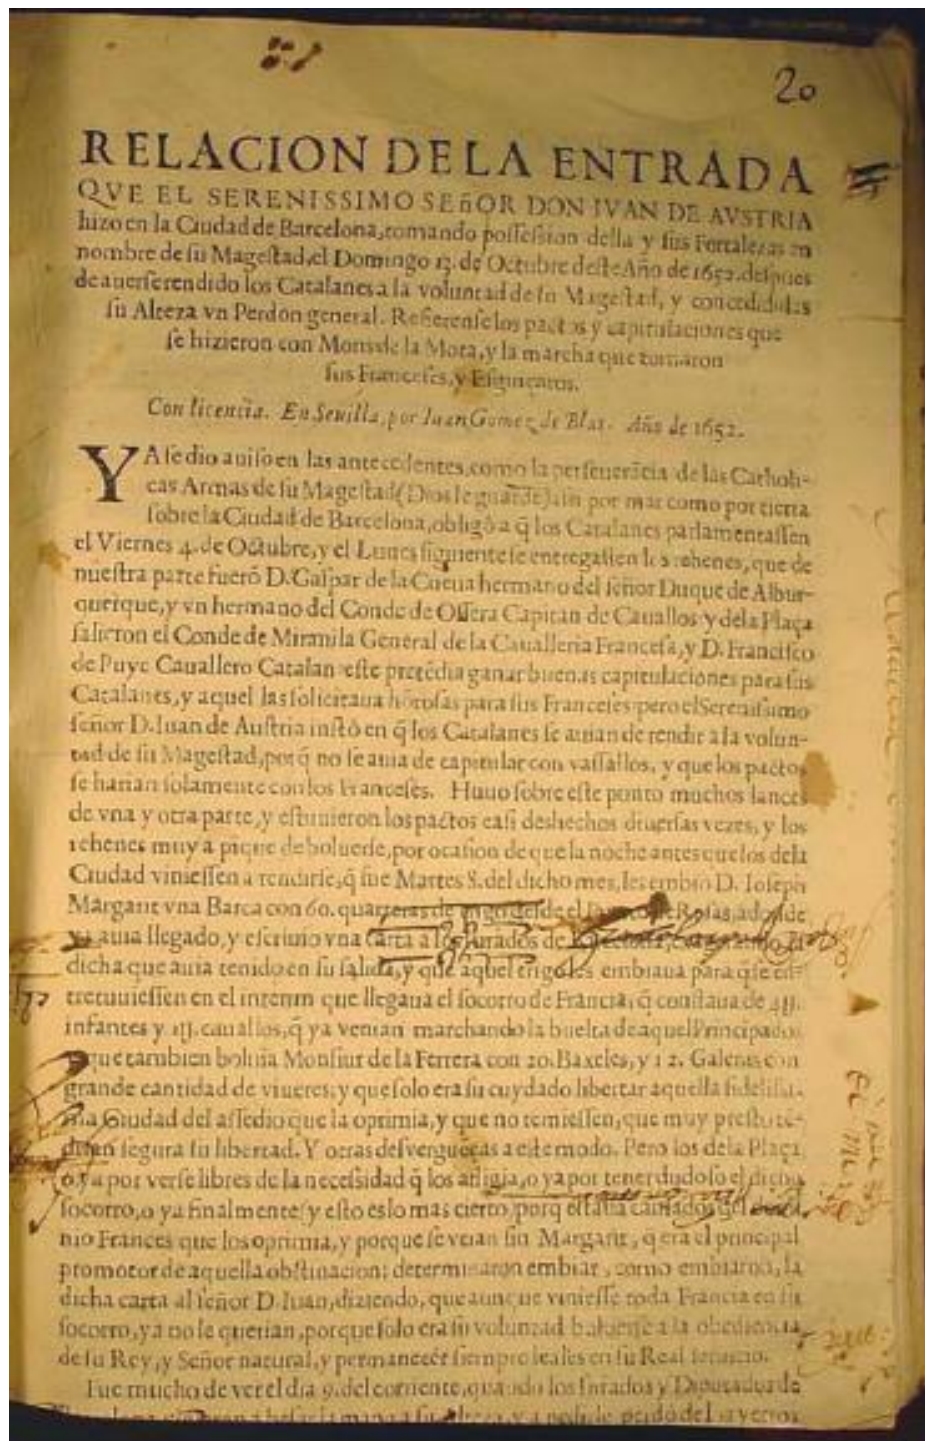 20
RELACION DE LA ENTRADA
QVE EL SERENISSIMO SEñOR DON IVAN DE AVSTRIA
hizo en la Ciudad de Barcelona, tomando possession della y sus Fortalezas en
nombre de su Magestad, el Domingo 13. de Octubre deste Año de 1652. despues
de auerse rendido los Catalanes a la voluntad de su Magestad, y concedidoles
su Alteza vn Perdon general. Refierense los pactos y capitulaciones que
se hizieron con Mons de la Mota, y la marcha que tomaron
sus Franceses, y Esguiçaros.
Con licencia. En Seuilla, por Iuan Gomez de Blas. Año de 1652.
YA se dio auiso en las antecedentes, como la perseuerãcia de las Catholi-
cas Armas de su Magestad (Dios le guarde) assi por mar como por tierra
sobre la Ciudad de Barcelona, obligò a q̃ los Catalanes parlamentassen
el Viernes 4. de Octubre, y el Lunes siguiente se entregassen los rehenes, que de
nuestra parte fuerõ D. Gaspar de la Cueua hermano del señor Duque de Albur-
querque, y vn hermano del Conde de Ossera Capitan de Cauallos: y de la Plaça
salieron el Conde de Mirinila General de la Caualleria Francesa, y D. Francisco
de Puye Cauallero Catalan: este pretẽdia ganar buenas capitulaciones para sus
Catalanes, y aquel las solicitaua hõrosas para sus Franceses: pero el Serenissimo
señor D. Iuan de Austria instò en q̃ los Catalanes se auian de rendir a la volun-
tad de su Magestad, porq̃ no se auia de capitular con vassallos, y que los pactos
se harian solamente con los Franceses. Huuo sobre este ponto muchos lances
de vna y otra parte, y estuuieron los pactos casi deshechos diuersas vezes, y los
rehenes muy a pique de boluerse, por ocasion de que la noche antes que los de la
Ciudad viniessen a rendirse, q̃ fue Martes 8. del dicho mes, les embiò D. Ioseph
Margarit vna Barca con 60. quarteras de trigo desde el de Rosas, adonde
ya auia llegado, y escriuio vna carta a los Iurados de
dicha que auia tenido en su salida, y que aquel trigo les embiaua para q̃ se en-
tretuuiessen en el interim que llegaua el socorro de Francia, q̃ constaua de 4U.
infantes y cauallos, q̃ ya venian marchando la buelta de aquel Principado:
que tambien boluia Monsiur de la Ferrera con 20. Baxeles, y 12. Galeras con
grande cantidad de viueres, y que solo era su cuydado libertar aquella fidelissi-
ma Ciudad del assedio que la oprimia, y que no temiessen, que muy presto ten-
drian segura su libertad. Y otras desverguẽças a este modo. Pero los de la Plaça
o ya por verse libres de la necessidad q̃ los afligia, o ya por tener dudoso el dicho
socorro, o ya finalmente (y esto es lo mas cierto) porq̃ estauã cansados del
nio Frances que los oprimia, y porque se veian sin Margarit, q̃ era el principal
promotor de aquella obstinacion: determinaron embiar, como embiarõ, la
dicha carta al señor D. Iuan, diziendo, que aunque viniesse toda Francia en su
socorro, ya no le querian, porque solo era su voluntad boluerse a la obediencia
de su Rey, y Señor natural, y permanecer siempre leales en su Real seruicio.
Fue mucho de ver el dia 9. del corriente, quando los Iurados y Diputados de